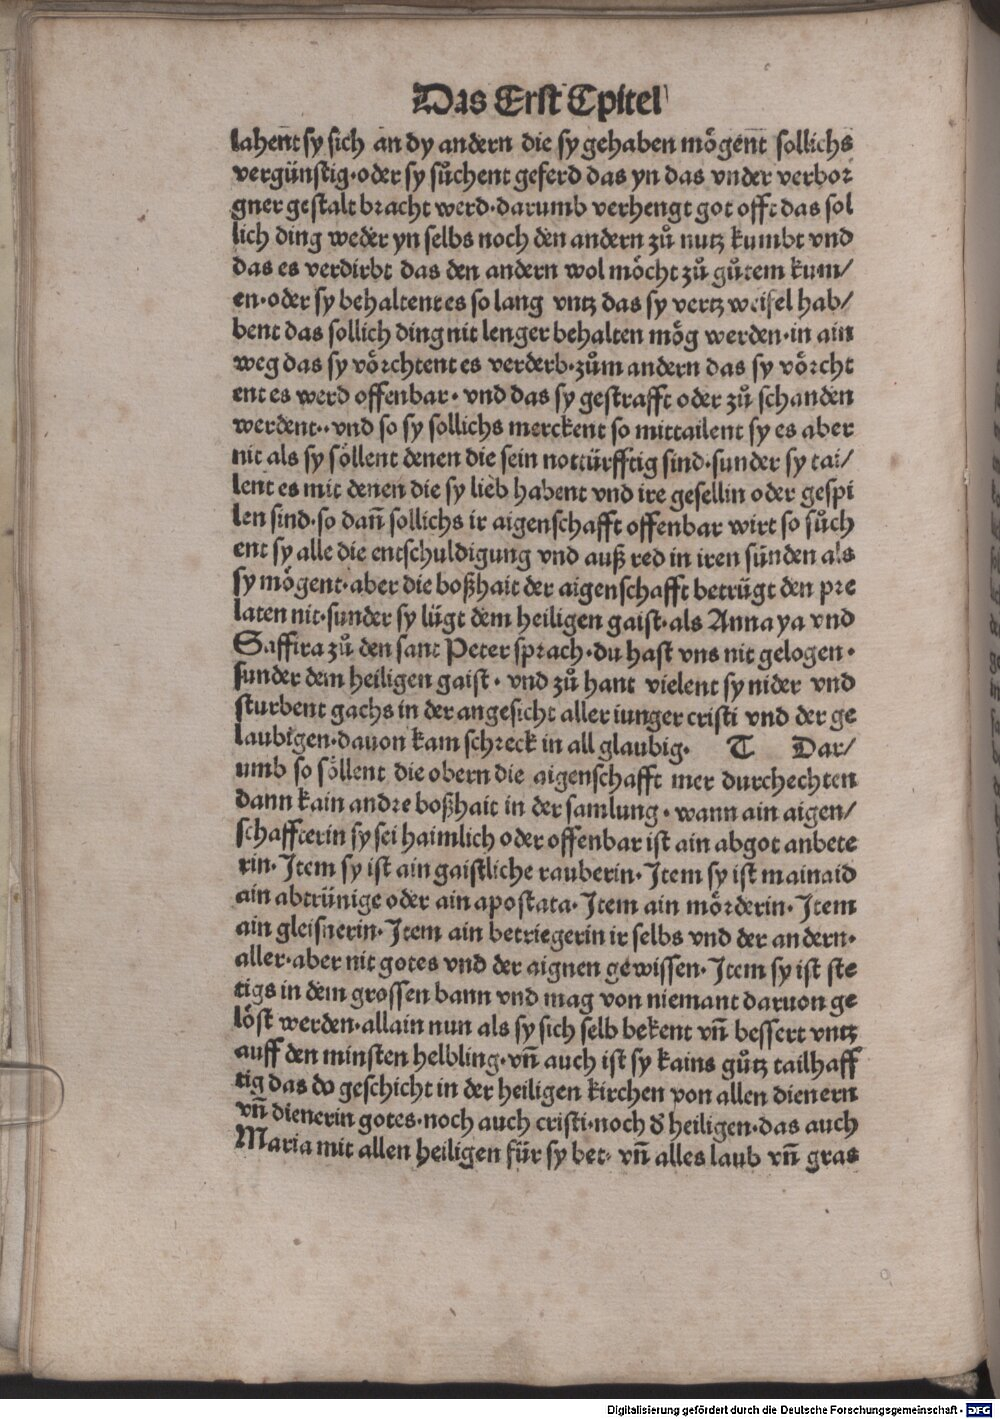 Das Erst Cpitel
lahent sy sich an dy andern die sy gehaben mögent sollichs
vergünstig·oder sy sůchent geferd das yn das vnder verbor
gner gestalt bracht werd·darumb verhengt got offt das sol
lich ding weder yn selbs noch den andern zů nutz kumbt vnd
das es verdirbt das den andern wol möcht zů gůtem kum/
en·oder sy behaltent es so lang vntz das sy vertzweifel hab/
bent das sollich ding nit lenger behalten mög werden·in ain
weg das sy vörchtent es verderb·zům andern das sy vörcht
ent es werd offenbar· vnd das sy gestrafft oder zů schanden
werdent··vnd so sy sollichs merckent so mittailent sy es aber
nit als sy söllent denen die sein nottürfftig sind·sunder sy tai/
lent es mit denen die sy lieb habent vnd ire gesellin oder gespi
len sind·so dañ sollichs ir aigenschafft offenbar wirt so sůch
ent sy alle die entschuldigung vnd auß red in iren sünden als
sy mögent·aber die boßhait der aigenschafft betrügt den pre
laten nit·sunder sy lügt dem heiligen gaist·als Annaya vnd
Saffira zů den sant Peter sprach·du hast vns nit gelogen·
sunder dem heiligen gaist· vnd zů hant vielent sy nider vnd
sturbent gachs in der angesicht aller iunger cristi vnd der ge
laubigen·dauon kam schreck in all glaubig· T Dar/
umb so söllent die obern die aigenschafft mer durchechten
dann kain andre boßhait in der samlung· wann ain aigen/
schaffterin sy sei haimlich oder offenbar ist ain abgot anbete
rin·Item sy ist ain gaistliche rauberin·Item sy ist mainaid
ain abtrünige oder ain apostata·Item ain mörderin·Item
ain gleisnerin·Item ain betriegerin ir selbs vnd der andern·
aller·aber nit gotes vnd der aignen gewissen·Item sy ist ste
tigs in dem grossen bann vnd mag von niemant daruon ge
löst werden·allain nun als sy sich selb bekent vñ bessert vntz
auff den minsten helbling·vñ auch ist sy kains gůtz tailhaff
tig das do geschicht in der heiligen kirchen von allen dienern
vñ dienerin gotes·noch auch cristi·noch ď heiligen·das auch
Maria mit allen heiligen für sy bet· vñ alles laub vñ gras
9
Digitalisierung gefördert durch die Deutsche Forschungsgemeinschaft - DFG